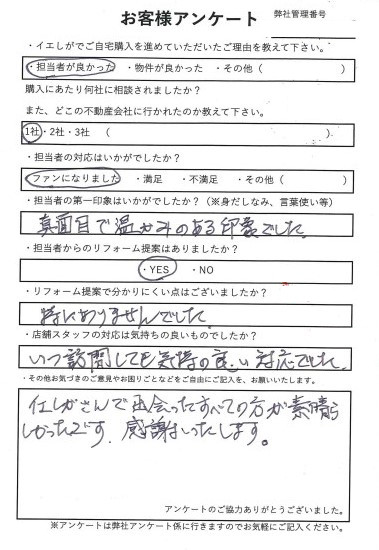 お客様アンケート
弊社管理番号
・イエしがでご自宅購入を進めていただいたご理由を教えて下さい。
・担当者が良かった ・物件が良かった ・その他（　　　　　　　　）
購入にあたり何社に相談されましたか？
また、どこの不動産会社に行かれたのか教えて下さい。
1社・2社・3社　（　　　　　　　　　　　　　　　　　　）.
・担当者の対応はいかがでしたか？
・ファンになりました　・満足　・不満足　・その他（　　　　　　）
・担当者の第一印象はいかがでしたか？（※身だしなみ、言葉使い等）
真面目で温かみのある印象でした。
・担当者からのリフォーム提案はありましたか？
・YES　・NO
・リフォーム提案で分かりにくい点はございましたか？
特にありませんでした。
・店舗スタッフの対応は気持の良いものでしたか？
いつ訪問しても気持の良い対応でした。
・その他お気づきのご意見やお困りごとなどをご自由にご記入を、お願いいたします。
イエしがさんで出会ったすべての方が素晴ら
しかったです。感謝いたします。
アンケートのご協力ありがとうございました。
※アンケートは弊社アンケート係に行きますのでお気軽にご記入ください。